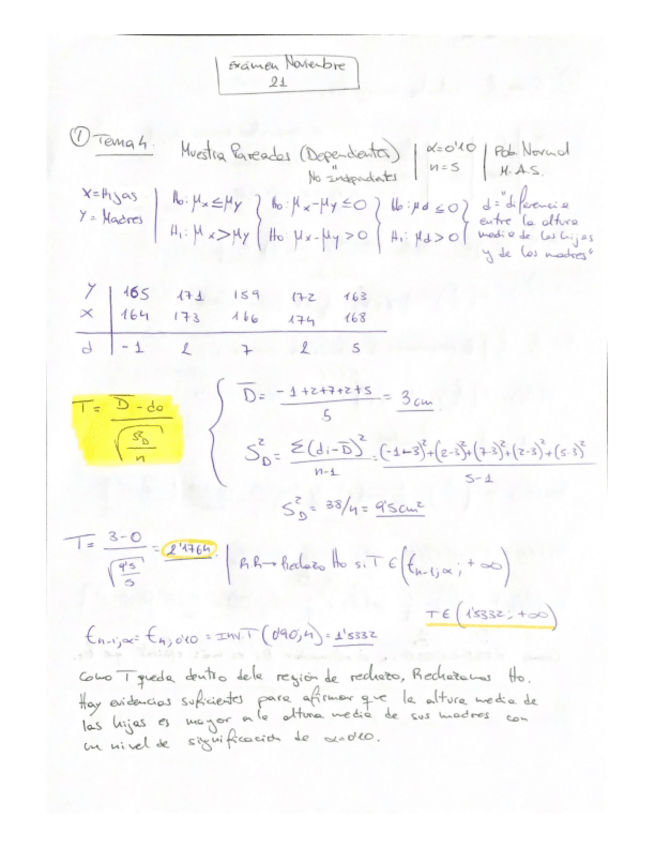 Exámen Noviembre
21
① Tema 4.
Muestra Pareados (Dependientes)
No "independientes"
α=0'10
n=5
Pob. Normal
M.A.S.
X=Hijas
Y= Madres
H₀: μx≤μy
H₁: μx>μy
H₀: μx-μy≤0
H₀: μx-μy>0
H₀: μd≤0
H₁: μd>0
d="diferencia
entre la altura
media de las hijas
y de las madres"
Y | 165 171 159 172 163
X | 164 173 166 174 168
d | -1 2 7 2 5
T = (D̄ - d₀) / √(S²D/n)
D̄ = (-1+2+7+2+5)/5 = 3 cm
S²D = Σ(di-D̄)²/(n-1) = ((-1-3)²+(2-3)²+(7-3)²+(2-3)²+(5-3)²)/(5-1)
S²D = 38/4 = 9'5cm²
T = (3-0)/√(9'5/5) = 2'1764.
R.R→ Rechazo H₀ si T ∈ (tn-1;α ; +∞)
T ∈ (1'5332; +∞)
tn-1;α = t4;0'10 = INV.T (0'90,4) = 1'5332
Como T queda dentro de la región de rechazo, Rechazamos H₀.
Hay evidencias suficientes para afirmar que la altura media de
las hijas es mayor a la altura media de sus madres con
un nivel de significación de α=0'10.